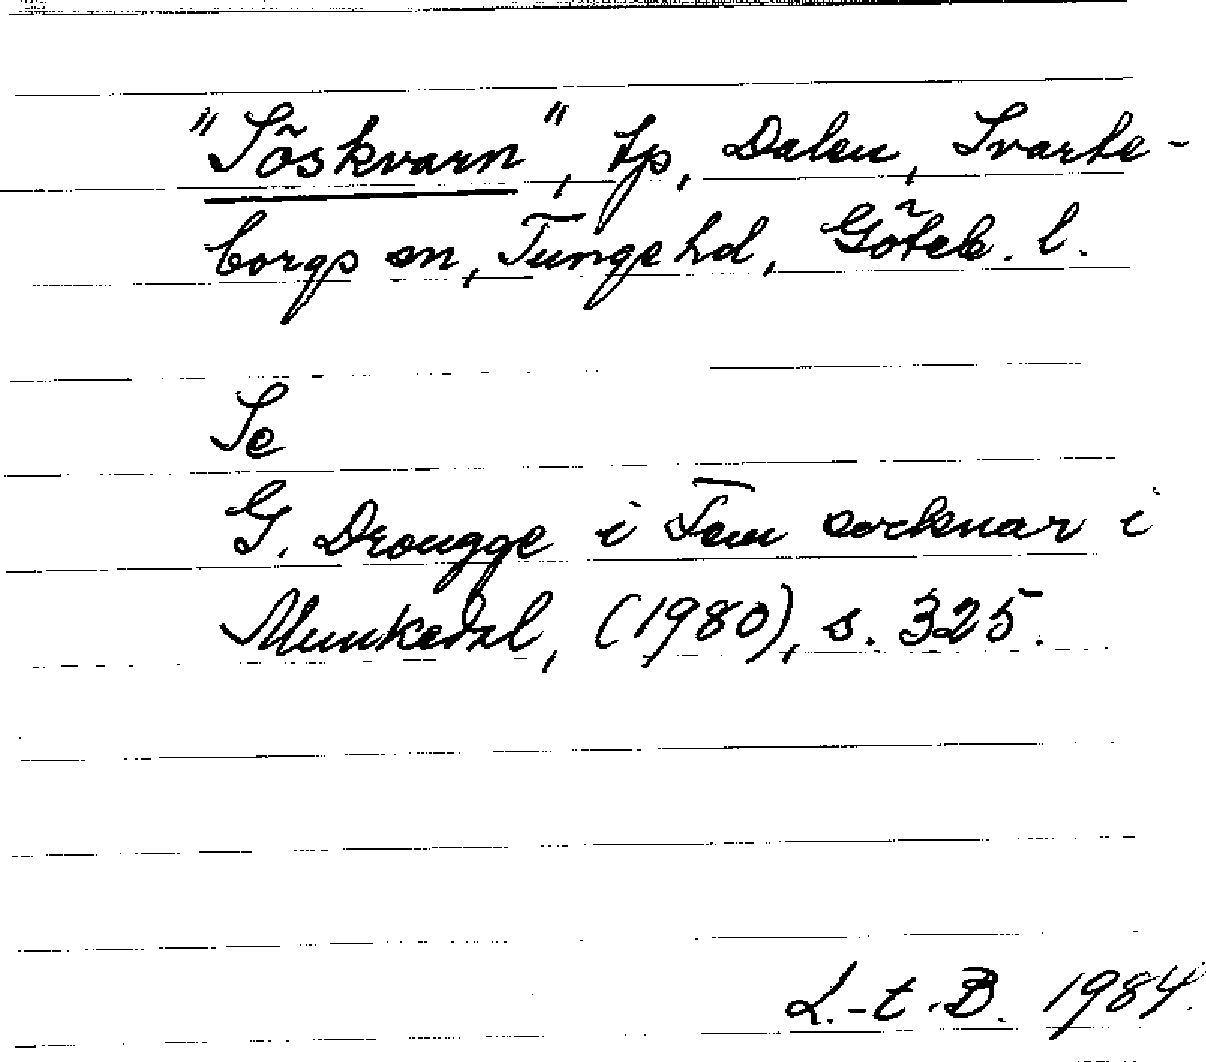 "Söskvarn", tp, Dalen, Svarte-
borgs sn, Tunge hd, Göteb. l.
Se
G. Drougge i Fem socknar i
Munkedal, (1980), s. 325.
L.-t. B. 1984.